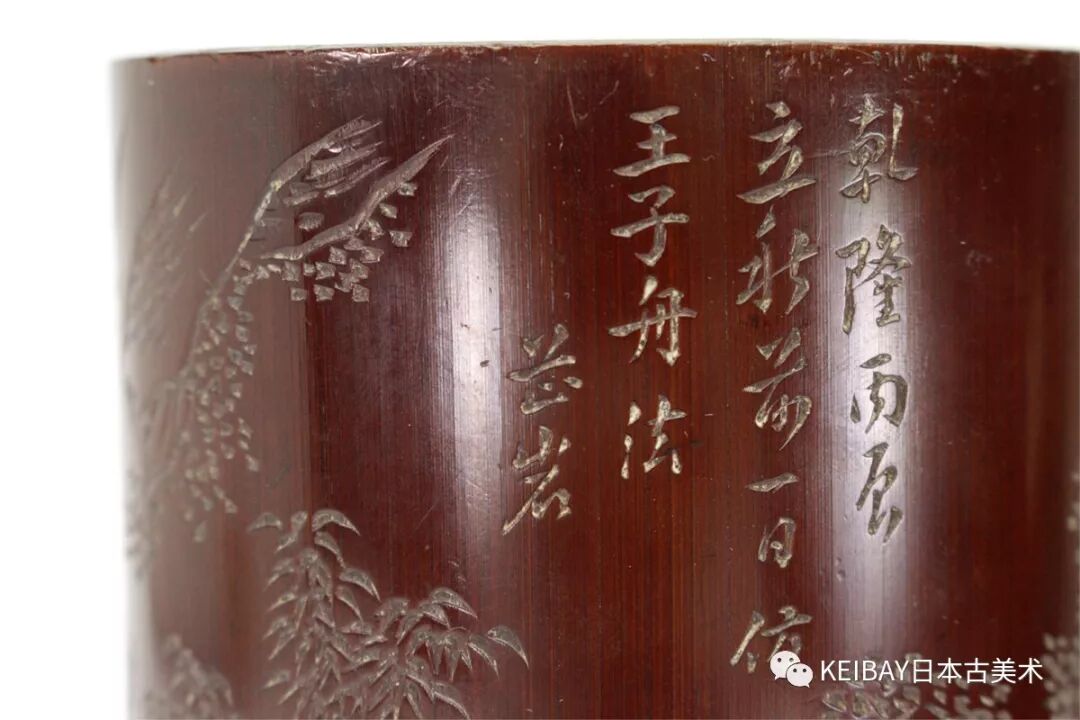 乾隆丙辰
立秋前一日仿
王子舟法
芷岩
KEIBAY日本古美术